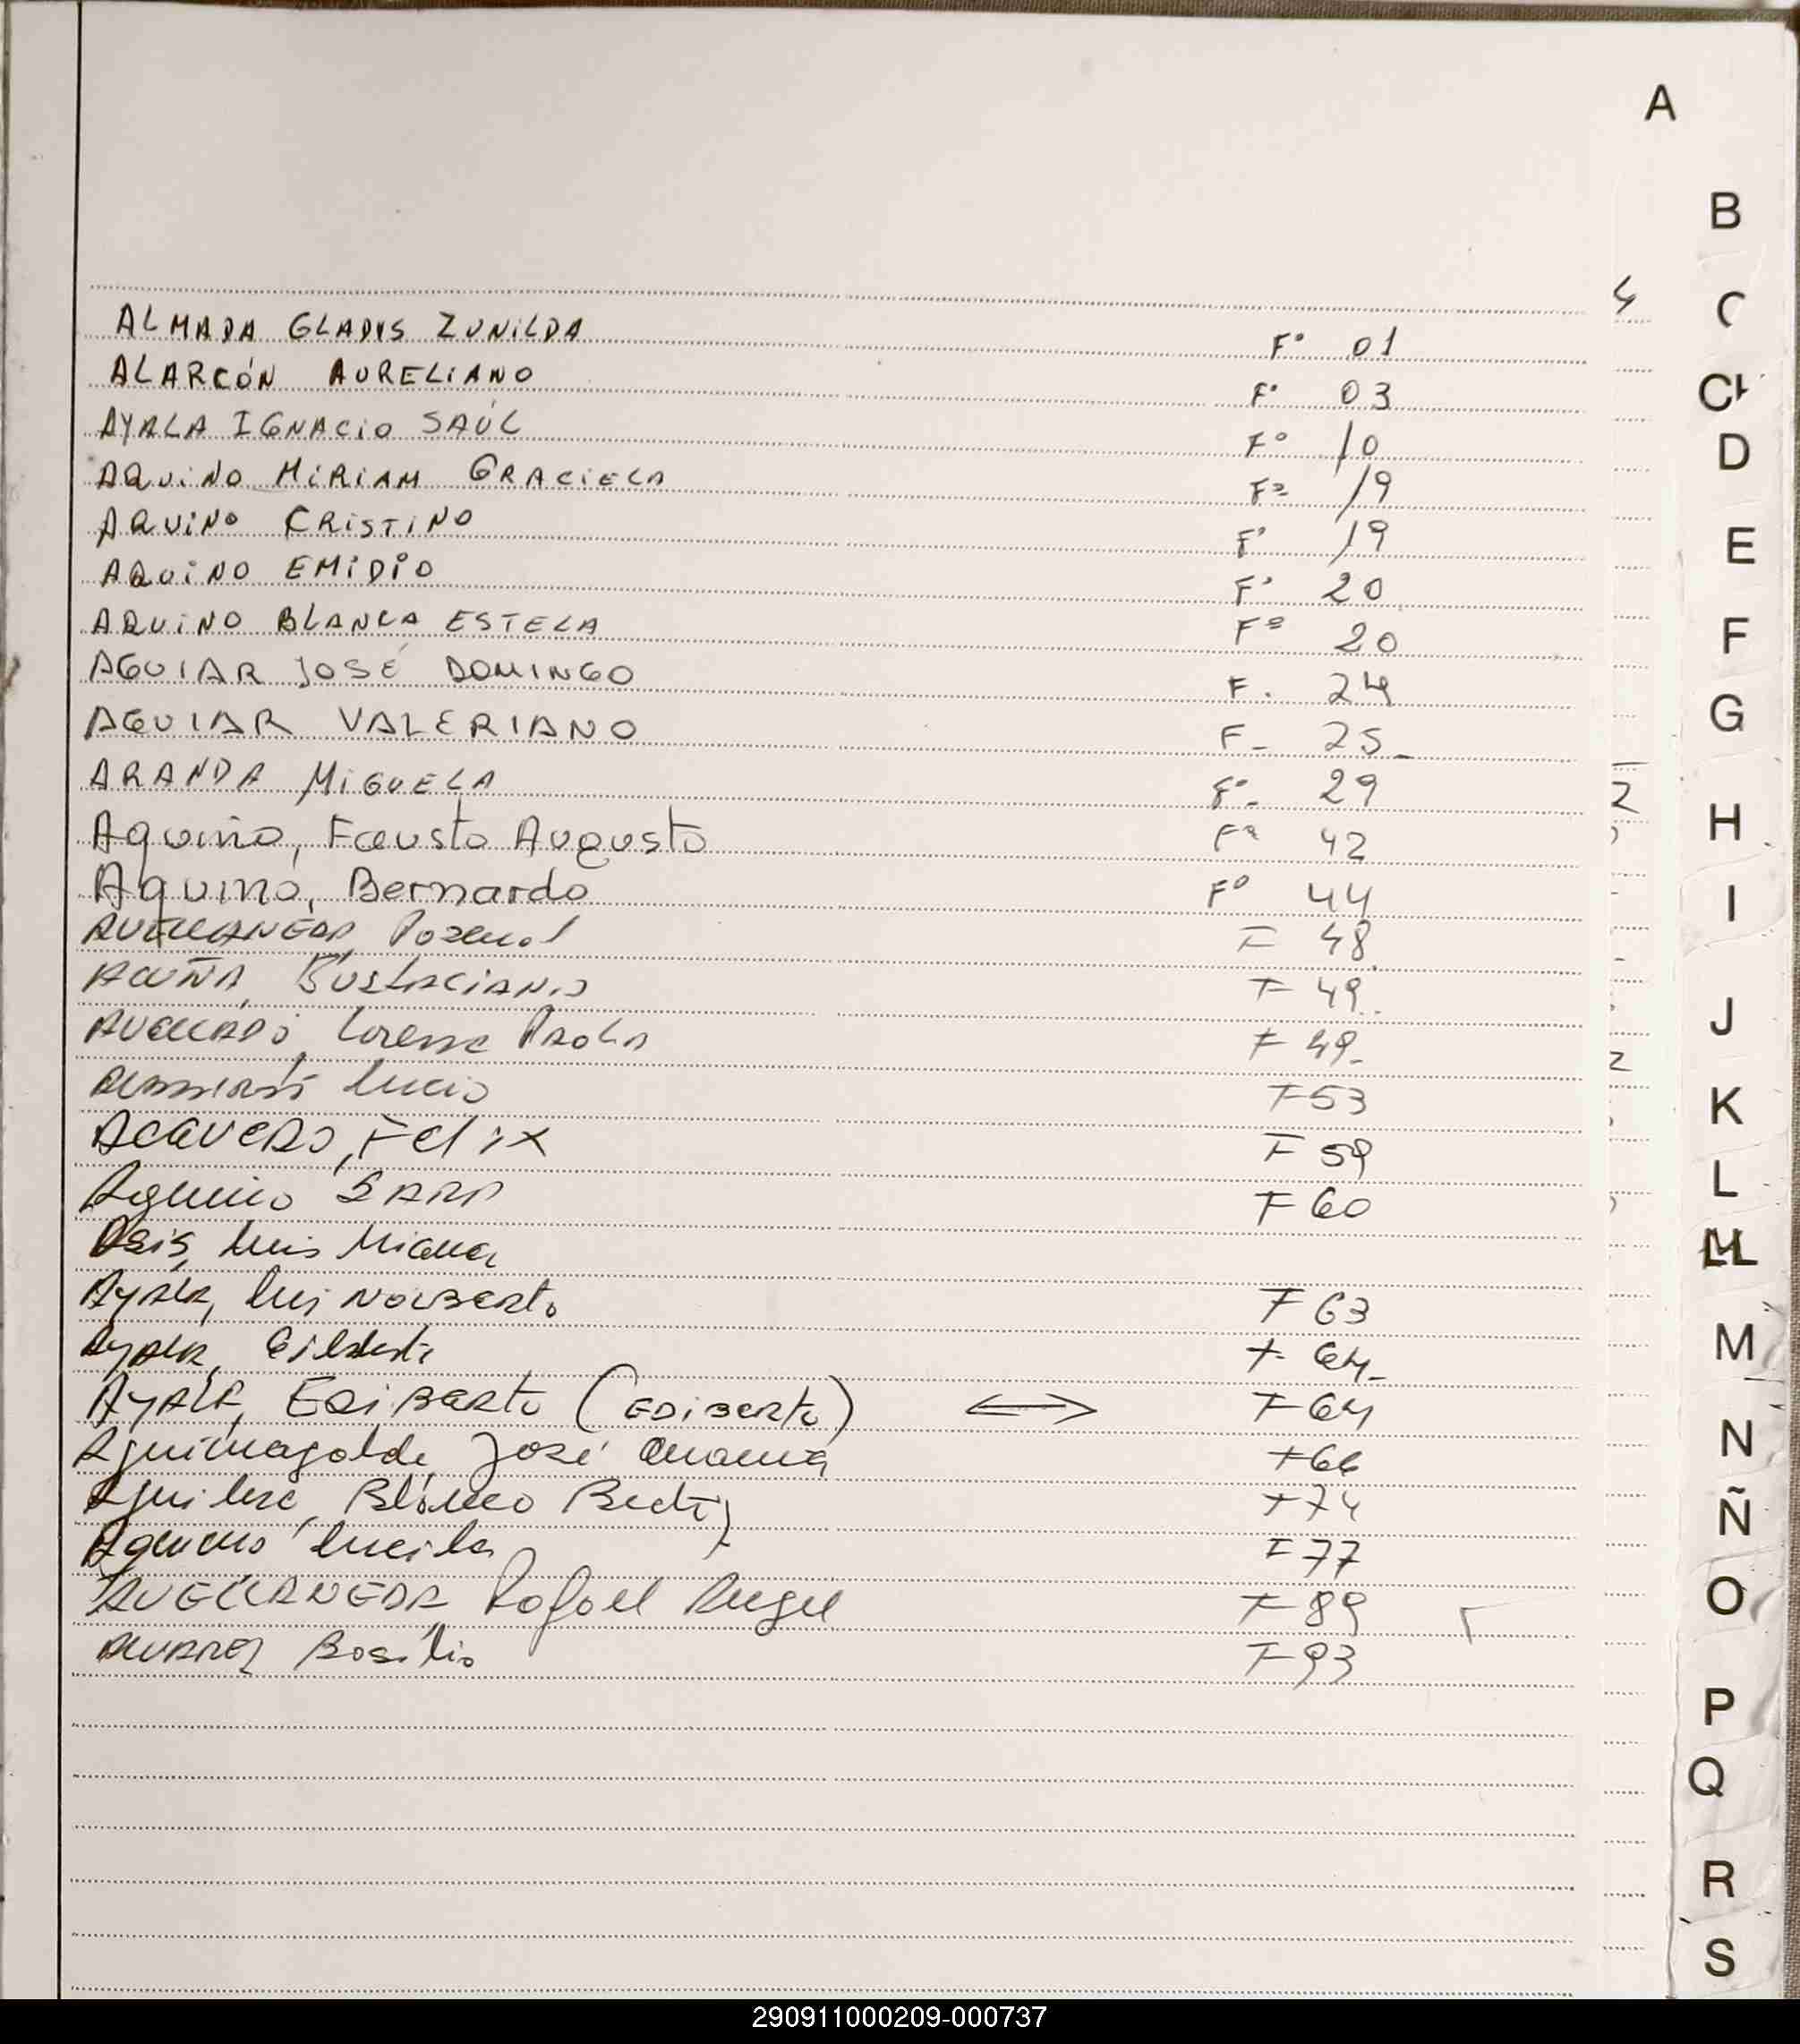 A
B
C
CH
D
E
F
G
H
I
J
K
L
LL
M
N
Ñ
O
P
Q
R
S
ALMADA GLADYS ZUNILDA F° 01
ALARCÓN AURELIANO F° 03
AYALA IGNACIO SAÚL F° 10
AQUINO MIRIAM GRACIELA Fº 19
AQUINO CRISTINO F° 19
AQUINO EMIDIO F° 20
AQUINO BLANCA ESTELA Fº 20
AGUIAR JOSÉ DOMINGO F. 24
AGUIAR VALERIANO F- 25-
ARANDA MIGUELA F°- 29
Aquino, Fausto Augusto Fº 42
Aquino, Bernardo Fº 44
AVELLANEDA, F 48
ACUÑA, EUSTACIANO F 49
Lorena PAOLA F 49-
Lucio F 53
ACEVEDO, Felix F 59
Aquino SARA F 60
Asis, Luis Miguel
Ayala, Luis NORBERTO F 63
Ayala, Gilberto F 64-
AyALA, EDIBERTO (EDIBERTO) F 64
José F 66
Aguilera, Beatriz F 74
Aquino Lucila F 77
AVELLANEDA Rafael Angel F 89
ALVAREZ Basilio F 93
290911000209-000737